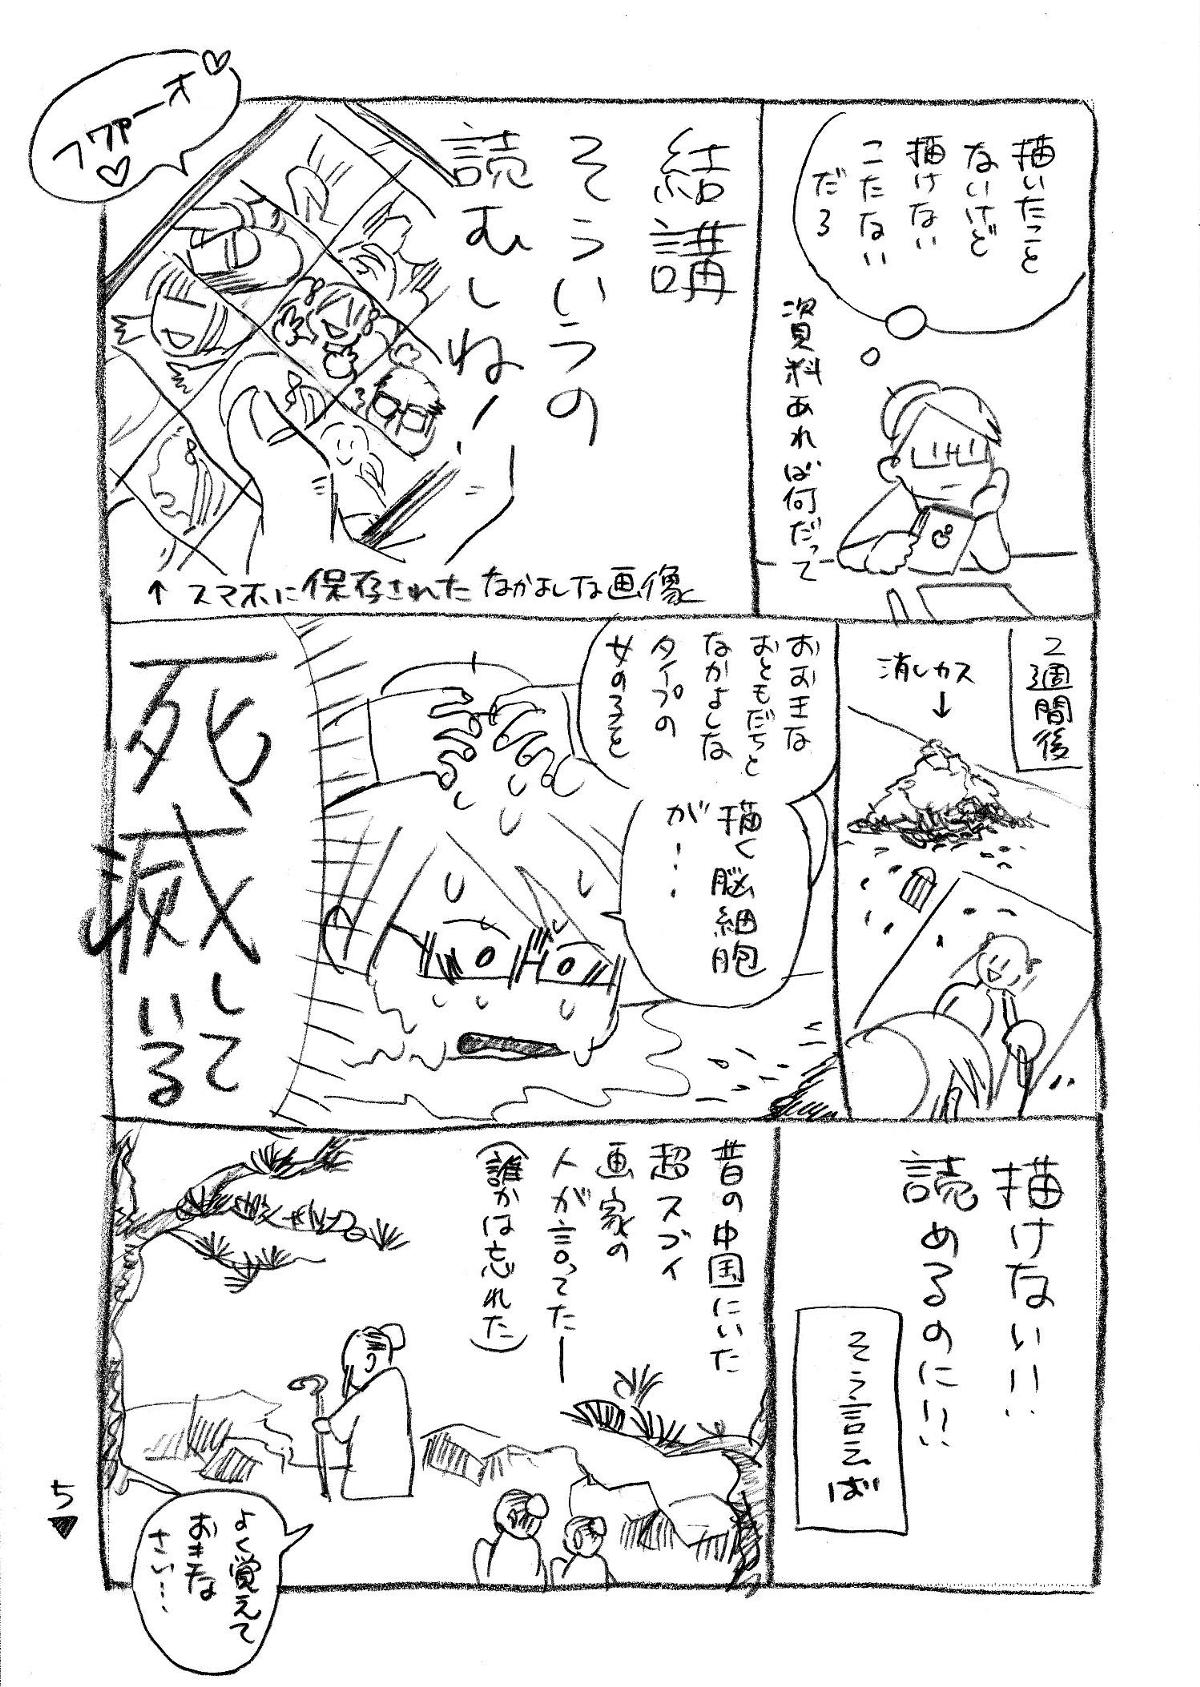 描いたこと
ないけど
描けない
こたない
だろ
資料あれば何だって
結講
そういうの
読むしね!
フワァーオ
↑スマホに保存されたなかよしな画像
2週間後
消しカス
↓
おお王な
おともだちと
なかよしな
タイプの
女の子を
描く脳細胞
が…
死滅している
描けない!!
読めるのに!!
そう言えば
昔の中国にいた
超スゴイ
画家の
人が言ってたー
(誰かは忘れた)
よく覚えて
おきな
さい…
5